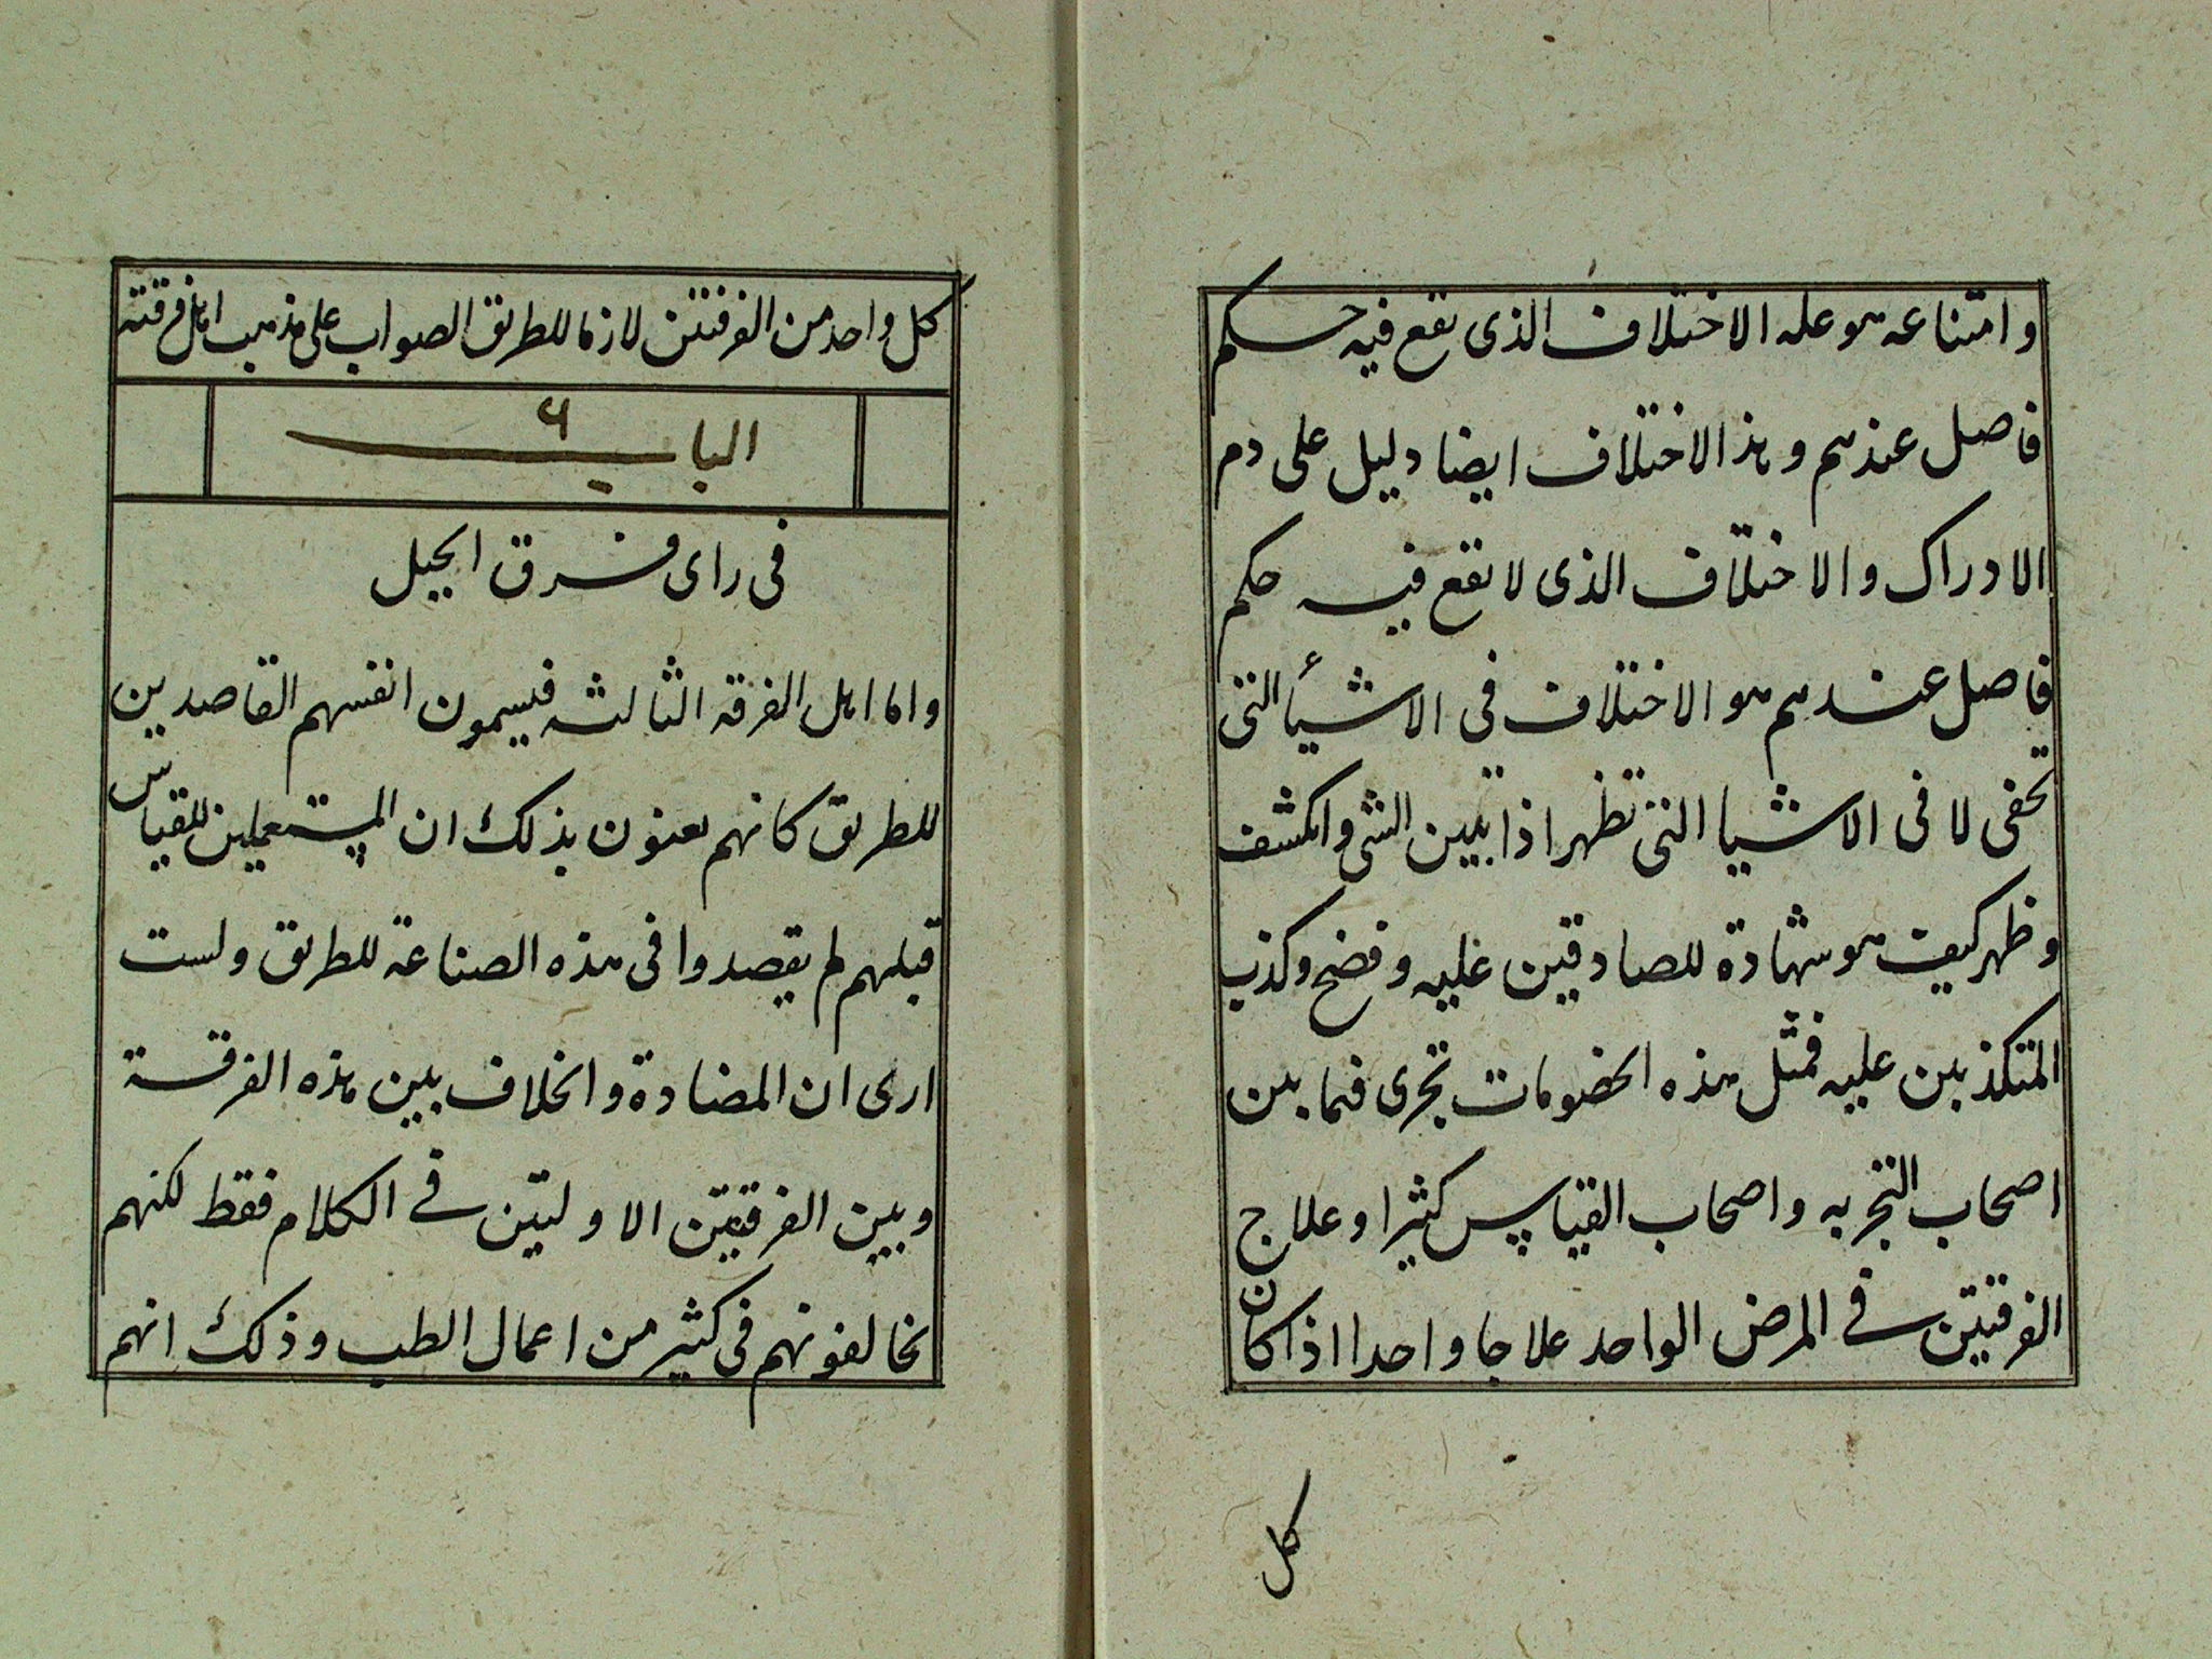 وامتناعه هو عله الاختلاف الذى يقع فيه حكم
فاصل عندهم وهذا الاختلاف ايضا دليل على دم
الادراك والاختلاف الذى لا يقع فيه حكم
فاصل عندهم هو الاختلاف فى الاشيأ التى
تخفى لا فى الاشيا التى تظهر اذا تبين الشى وانكشف
وظهر كيف هو شهادة للصادقين عليه وفضح وكذب
المتكذبين عليه فمثل هذه الخصومات تجرى فيما بين
اصحاب التجربه واصحاب القياس كثيرا وعلاج
الفرقتين فى المرض الواحد علاجا واحدا اذا كان
كل
كل واحد من الفرقتين لازما للطريق الصواب على مذهب اهل فرقته
الباب ۶
فى راى فرق الحيل
واما اهل الفرقه الثالثه فيسمون انفسهم القاصدين
للطريق كانهم يعنون بذلك ان المستعملين للقياس
قبلهم لم يقصدوا فى هذه الصناعة للطريق ولست
ارى ان المضادة والخلاف بين هذه الفرقة
وبين الفرقتين الاوليتين فى الكلام فقط لكنهم
يخالفونهم فى كثير من اعمال الطب وذلك انهم